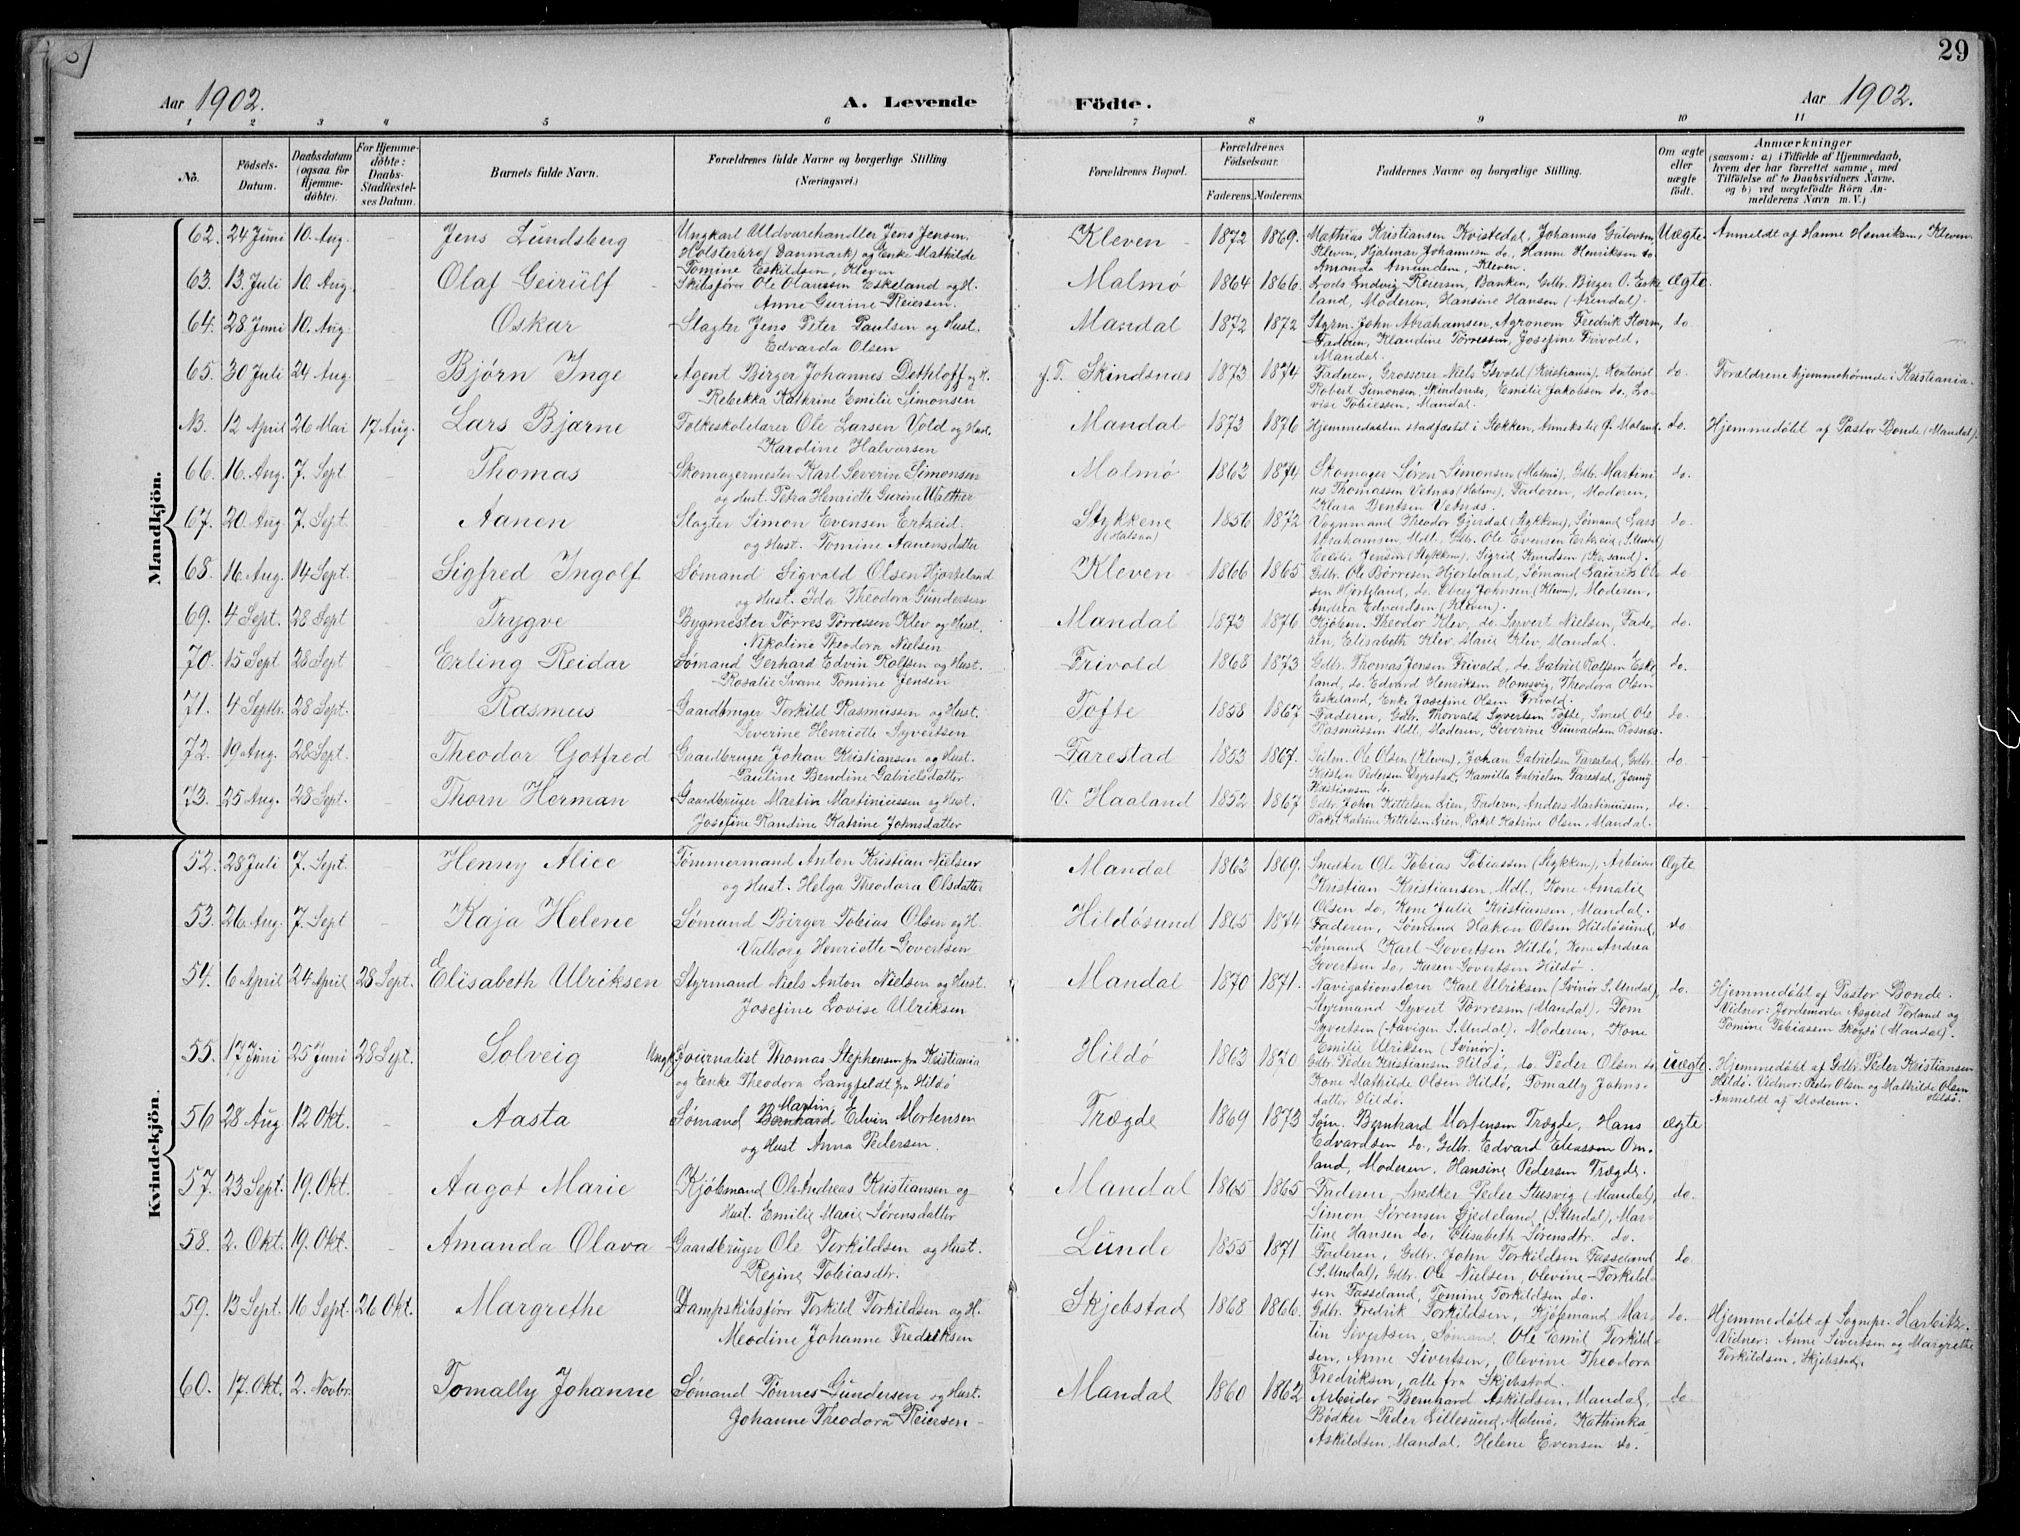 29
Aar 1902. A. Levende Födte. Aar 1902.
1 2 3 4 5 6 7 8 9 10 11
No. Födsels-Datum. Daabsdatum (ogsaa for Hjemmedöbte). For Hjemmedöbte: Daabs-Stadfæstelses Datum. Barnets fulde Navn. Forældrenes fulde Navne og borgerlige Stilling (Næringsvei.) Forældrenes Bopæl. Forældrenes Födselsaar. Faderens. Moderens. Faddernes Navne og borgerlige Stilling. Om ægte eller uægte födt. Anmærkninger (saasom: a) i Tilfælde af Hjemmedaab, hvem der har forrettet samme, med Tilföielse af to Daabsvidners Navne, og b) ved uægtefödte Börn Anmelderens Navn m. V.)
Mandkjön.
62. 24 Juni 10 Aug. - Jens Lundsberg Ungkarl Uldvarehandler Jens Jensen, Kleven 1872 1869. Mathias Kristiansen Kvistedal, Johannes Gulovsen Uægte Anmeldt af Hanne Henriksen, Kleven
Holsterbro (Danmark) og Enke Mathilde Kleven, Hjalmar Johannesen do, Hanne Henriksen do
Tomine Eskildsen, Kleven Amanda Amundsen, Kleven.
63. 13 Juli 10 Aug. Olaf Geirulf Skibsfører Ole Olaussen Eskeland og H. Malmø 1864 1866. Ludvig Reiersen, Banken, Gdbr. Birger O. Eske- ægte.
Anne Gurine Reiersen. land, Moderen, Hansine Hansen (Arendal).
64. 28 Juni 10 Aug. Oskar Slagter Jens Peter Paulsen og Hust. Mandal 1872 1872 Styrm. John Abrahamsen, Agronom Fredrik Storm, do.
Edvarda Olsen Faderen, Klaudine Tørressen, Josefine Frivold,
Mandal.
65. 30 Juli 24 Aug. Bjørn Inge Agent Birger Johannes Dethloff og H. f. T. Skindsnæs 1873 1874 Faderen, Grosserer Niels (Kristiania), Kontorist do. Forældrene hjemmehørende i Kristiania.
Rebekka Kathrine Emilie Simonsen Robert Simonsen, Skindsnæs, Emilie Jakobsen do. Lo-
vise Tobiessen, Mandal.
NB. 12 April 26 Mai 17 Aug. Lars Bjarne Folkeskolelærer Ole Larsen Vold og Hust. Mandal 1873 1876 Hjemmedaaben stadfæstet i Stokken, Anneks til Ø. Moland do. Hjemmedøbt af Pastor Bonde (Mandal).
Karoline Halvorsen
66. 16 Aug. 7. Sept - Thomas Skomagermester Karl Severin Simonsen Malmø 1863 1874 Skomager Søren Simonsen (Malmø), Gdbr. Martini- do.
og Hust. Petra Henriette Gurine Walther us Thomassen Vetnæs (Holme), Faderen, Moderen,
Klara Bentsen Vetnæs.
67. 20 Aug. 7. Sept. Aanen Slagter Simon Evensen Erkeid Stykkene (Halsaa) 1856 1872 Vognmand Theodor Gjerdal (Stykken), Sømand Lars do.
og Hust. Tomine Aanensdatter Abrahamsen, Mdl., Gdbr. Ole Evensen Erkeid (S. Undal)
Jensen (Stykken), Sigrid Knudsen (Kr.sand).
68. 16 Aug. 14 Sept. Sigfred Ingolf Sømand Sigvald Olsen Hjorkeland Kleven 1866 1865 Gdbr. Ole Børresen Hjorkeland, Sømand Laurits Ol- do
og Hust. Ida Theodora Gundersen sen Hjorkeland, do. Johnsen (Kleven), Moderen,
Andrea Edvardsen (Kleven).
69. 4 Sept. 28 Sept Trygve Bygmester Tørres Tørressen Klev og Hust. Mandal 1873 1876 Kjøbm. Theodor Klev, do. Syvert Nielsen, Fade- do.
Nikoline Theodora Nielsen ren, Elisabeth Klev, Marie Klev, Mandal.
70. 15 Sept 28 Sept Erling Reidar Sømand Gerhard Edvin Rolfsen og Hust. Frivold 1868 1873 Gdbr. Thomas Jensen Frivold, do. Gabriel Rolfsen Eske- do.
Rosalie Svane Tomine Jensen land, do. Edvard Henriksen Homsvig, Theodora Olsen
Eskeland, Enke Josefine Olsen Frivold
71. 4 Septbr. 28 Sept. Rasmus Gaardbruger Torkild Rasmussen og Hust. Tofte 1858 1867 Faderen, Gdbr. Thorvald Syvertsen Tofte, Smed Ole do.
Severine Henriette Syvertsen Rasmussen Mdl., Moderen, Severine Gunvaldsen Rosnæs.
72. 19 Aug. 28 Sept. Theodor Gotfred Gaardbruger Johan Kristiansen og Hust. Farestad 1853 1867. Ole Olsen (Kleven), Johan Gabrielsen Farestad, Gdbr. do.
Pauline Bendine Gabrielsdatter Kristen Pedersen Dyrstad, Kamilla Gabrielsen Farestad, Jenny
Kristiansen do.
73. 25 Aug. 28 Sept. Thorn Herman Gaardbruger Martin Martiniussen og Hust. V. Haaland 1852 1867 Gdbr. John Kittelsen Aien, Faderen, Anders Martiniussen, do.
Josefine Randine Katrine Johnsdatter Rakel Katrine Kittelsen Aien, Rakel Katrine Olsen, Mandal.
Kvindekjön.
52. 28 Juli 7. Sept. Henny Alice Tømmermand Anton Kristian Nielsen Mandal 1863 1869. Snedker Ole Tobias Tobiassen (Stykken), Arbeider Ægte
og Hust. Helga Theodora Olsdatter Kristian Kristiansen, Mdl., Kone Amalie
Olsen do, Kone Julie Kristiansen, Mandal.
53. 26 Aug. 7. Sept Kaja Helene Sømand Birger Tobias Olsen og H. Hildøsund 1865 1874 Faderen, Sømand Hakon Olsen Hildøsund, do.
Valborg Henriette Govertsen Sømand Karl Govertsen Hildø, Kone Andrea
Govertsen do, Karen Govertsen Hildø.
54. 6 April 24 April 28 Sept. Elisabeth Ulriksen Styrmand Niels Anton Nielsen og Hust. Mandal 1870 1871. Navigationslærer Karl Ulriksen (Svinør S. Undal), do. Hjemmedøbt af Pastor Bonde.
Josefine Lovise Ulriksen Styrmand Syvert Tørressen (Mandal). Tom Vidner: Jordemoder Asgerd Torland og
Syvertsen (Aavigen S. Undal). Moderen, Kone Tomine Tobiassen Skogsø (Mandal).
Emilie Ulriksen (Svinør).
55. 17 Juni 25 Juni 28 Sept. Solveig Ungk. Journalist Thomas Stephensen fra Kristiania Hildø 1863 1870 Gdbr. Peder Kristiansen Hildø, do. Peder Olsen do uægte Hjemmedøbt af Gdbr. Peder Kristiansen
og Enke Theodora Langfeldt fra Hildø Kone Mathilde Olsen Hildø, Tomally Johns- Hildø. Vidner: Peder Olsen og Mathilde Olsen
datter Hildø. Hildø. Anmeldt af Moderen.
56 28 Aug 12 Okt. Aasta Sømand Bernhard Martin Edvin Mortensen Trægde 1869 1873 Søm. Bernhard Mortensen Trægde, Hans ægte
og Hust Anna Pedersen. Edvardsen do, Gdbr. Edvard Eliassen Om-
land, Moderen, Hansine Pedersen Trægde.
57. 23 Sept. 19. Okt. Aagot Marie Kjøbmand Ole Andreas Kristiansen og Mandal 1865 1865 Faderen, Snedker Peder Stusvig (Mandal), do.
Hust. Emilie Marie Sørensdatter Simon Sørensen Gjedeland (S. Undal), Mar-
tine Hansen do, Elisabeth Sørensdtr. do.
58. 2. Okt. 19. Okt. Amanda Olava Gaardbruger Ole Torkildsen og Hust. Lunde 1855 1871 Faderen, Gdbr. John Torkildsen Fasseland do.
Regine Tobiasdtr. (S. Undal), Gdbr. Ole Nielsen, Olevine Torkild-
sen Fasseland, Tomine Torkildsen do.
59. 13 Sept. 16 Sept. 26 Okt. Margrethe Dampskibsfører Torkild Torkildsen og H. Skjebstad 1868 1866. Gdbr. Fredrik Torkildsen, Kjøbmand Mar- do. Hjemmedøbt af Sognepr. Harbitz.
Meodine Johanne Fredriksen tin Sivertsen, Sømand Ole Emil Torkild- Vidner: Anne Sivertsen og Margrethe
sen, Anne Sivertsen, Olevine Theodora Torkildsen, Skjebstad.
Fredriksen, alle fra Skjebstad.
60. 17. Okt. 2. Novbr. Tomally Johanne Sømand Tønnes Gundersen og Hust. Mandal 1860 1862 Arbeider Bernhard Askildsen, Mandal, do
Johanne Theodora Reiersen Bødker Peder Lillesund, Malmø, Kathinka
Askildsen, Mandal, Helene Evensen do.